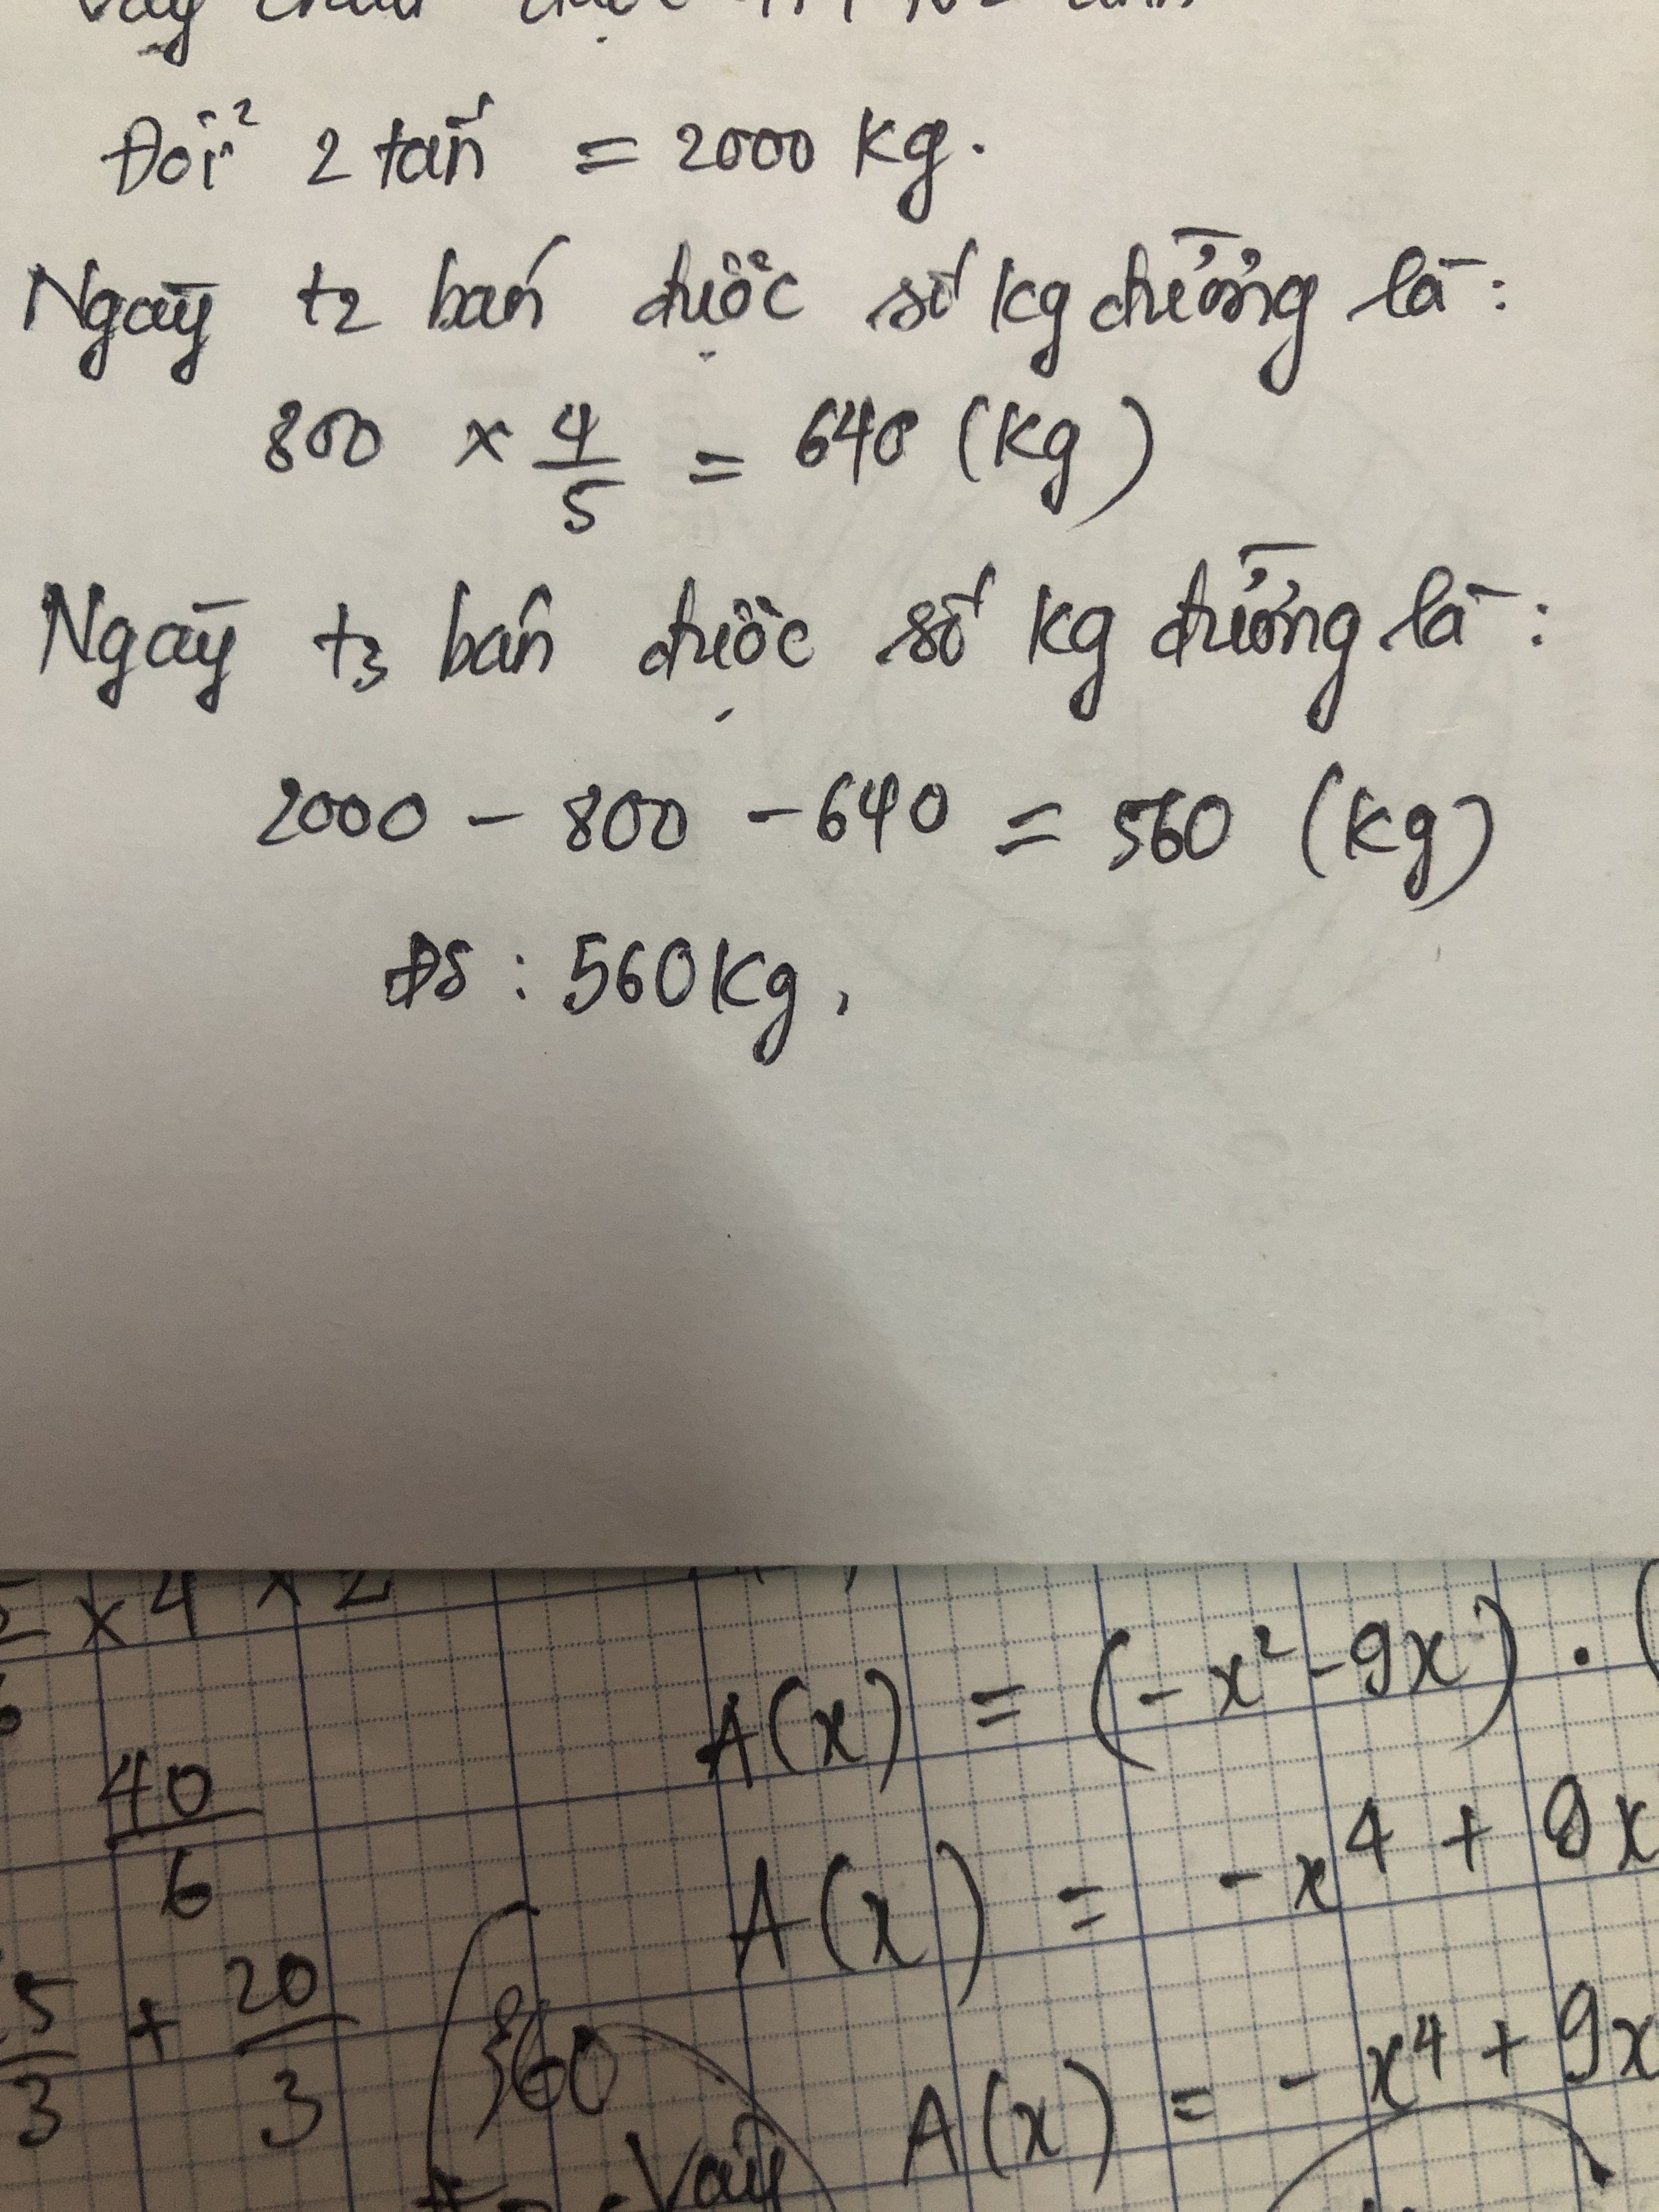 Đổi 2 tấn = 2000 kg.
Ngày t2 bán được số kg đường là:
800 x 4/5 = 640 (kg)
Ngày t3 bán được số kg đường là:
2000 - 800 - 640 = 560 (kg)
ĐS: 560kg.
x 4 x 2
A(x) = (-x² - 9x) . (
40/6
A(x) = -x⁴ + 9x
5/3 + 20/3
360
A(x) = -x⁴ + 9x
Vậy